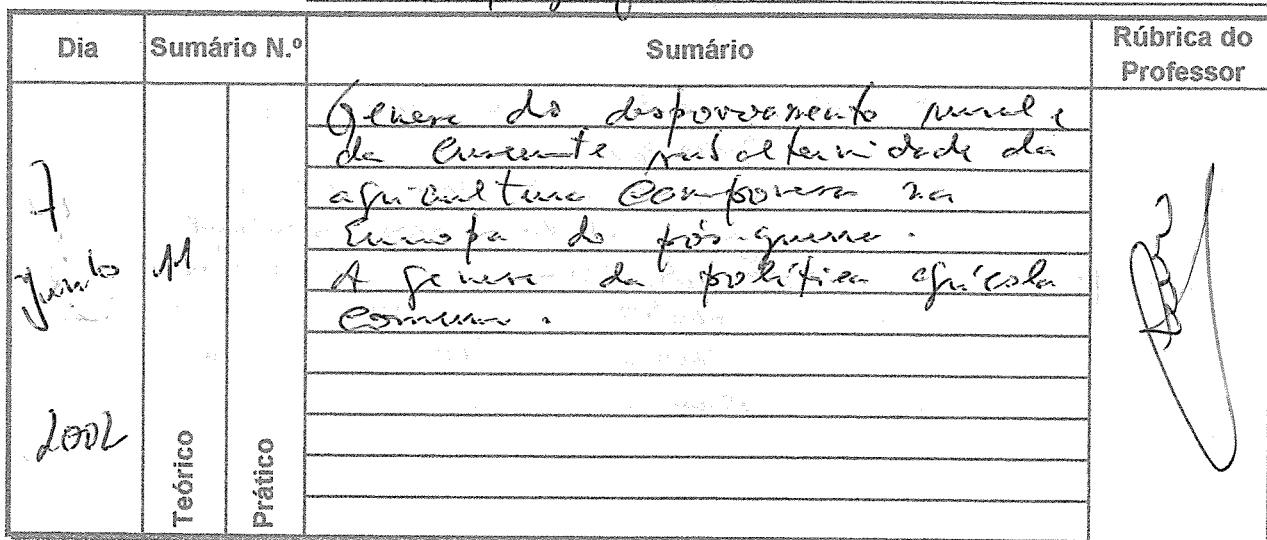 Dia
Sumário N.º
Sumário
Rúbrica do
Professor
7
Junho
2002
11
Teórico
Prático
Génese do despovoamento rural e
da crescente subalternidade da
agricultura camponesa na
Europa do pós-guerra.
A génese da política agrícola
comum.